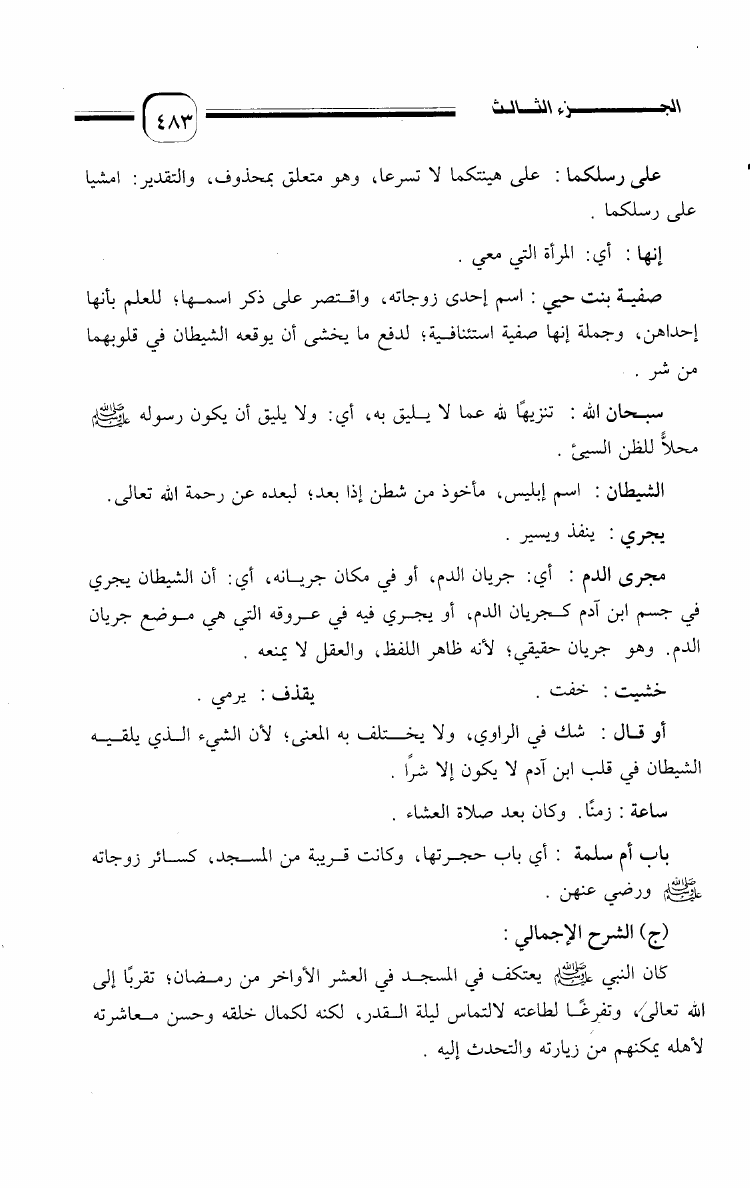 الجـــــــــــزء الثـــالـث
٤٨٣
على رسلكما : على هينتكما لا تسرعا، وهو متعلق بمحذوف، والتقدير: امشيا
على رسلكما .
إنها : أي: المرأة التي معي .
صفيـة بنت حيي : اسم إحدى زوجاته، واقـتصر على ذكر اسمـها؛ للعلم بأنها
إحداهن، وجملة إنها صفية استئنافـية؛ لدفع ما يخشى أن يوقعه الشيطان في قلوبهما
من شر .
سبـحان الله : تنزيهًا لله عما لا يـليق به، أي: ولا يليق أن يكون رسوله ﷺ
محلاً للظن السيئ .
الشيطان : اسم إبليس، مأخوذ من شطن إذا بعد؛ لبعده عن رحمة الله تعالى.
يجري : ينفذ ويسير .
مجرى الدم : أي: جريان الدم، أو في مكان جريـانه، أي: أن الشيطان يجري
في جسم ابن آدم كـجريان الدم، أو يجـري فيه في عـروقه التي هي مـوضع جريان
الدم. وهو جريان حقيقي؛ لأنه ظاهر اللفظ، والعقل لا يمنعه .
خشيت : خفت . يقذف : يرمي .
أو قـال : شك في الراوي، ولا يخـتلف به المعنى؛ لأن الشيء الـذي يلقـيـه
الشيطان في قلب ابن آدم لا يكون إلا شرًا .
ساعة : زمنًا. وكان بعد صلاة العشاء .
باب أم سلمة : أي باب حجـرتها، وكانت قـريبة من المسـجد، كسـائر زوجاته
ﷺ ورضي عنهن .
(ج) الشرح الإجمالي :
كان النبي ﷺ يعتكف في المسجـد في العشر الأواخر من رمـضان؛ تقربًا إلى
الله تعالى، وتفرغًـا لطاعته لالتماس ليلة القـدر، لكنه لكمال خلقه وحسن مـعاشرته
لأهله يمكنهم من زيارته والتحدث إليه .